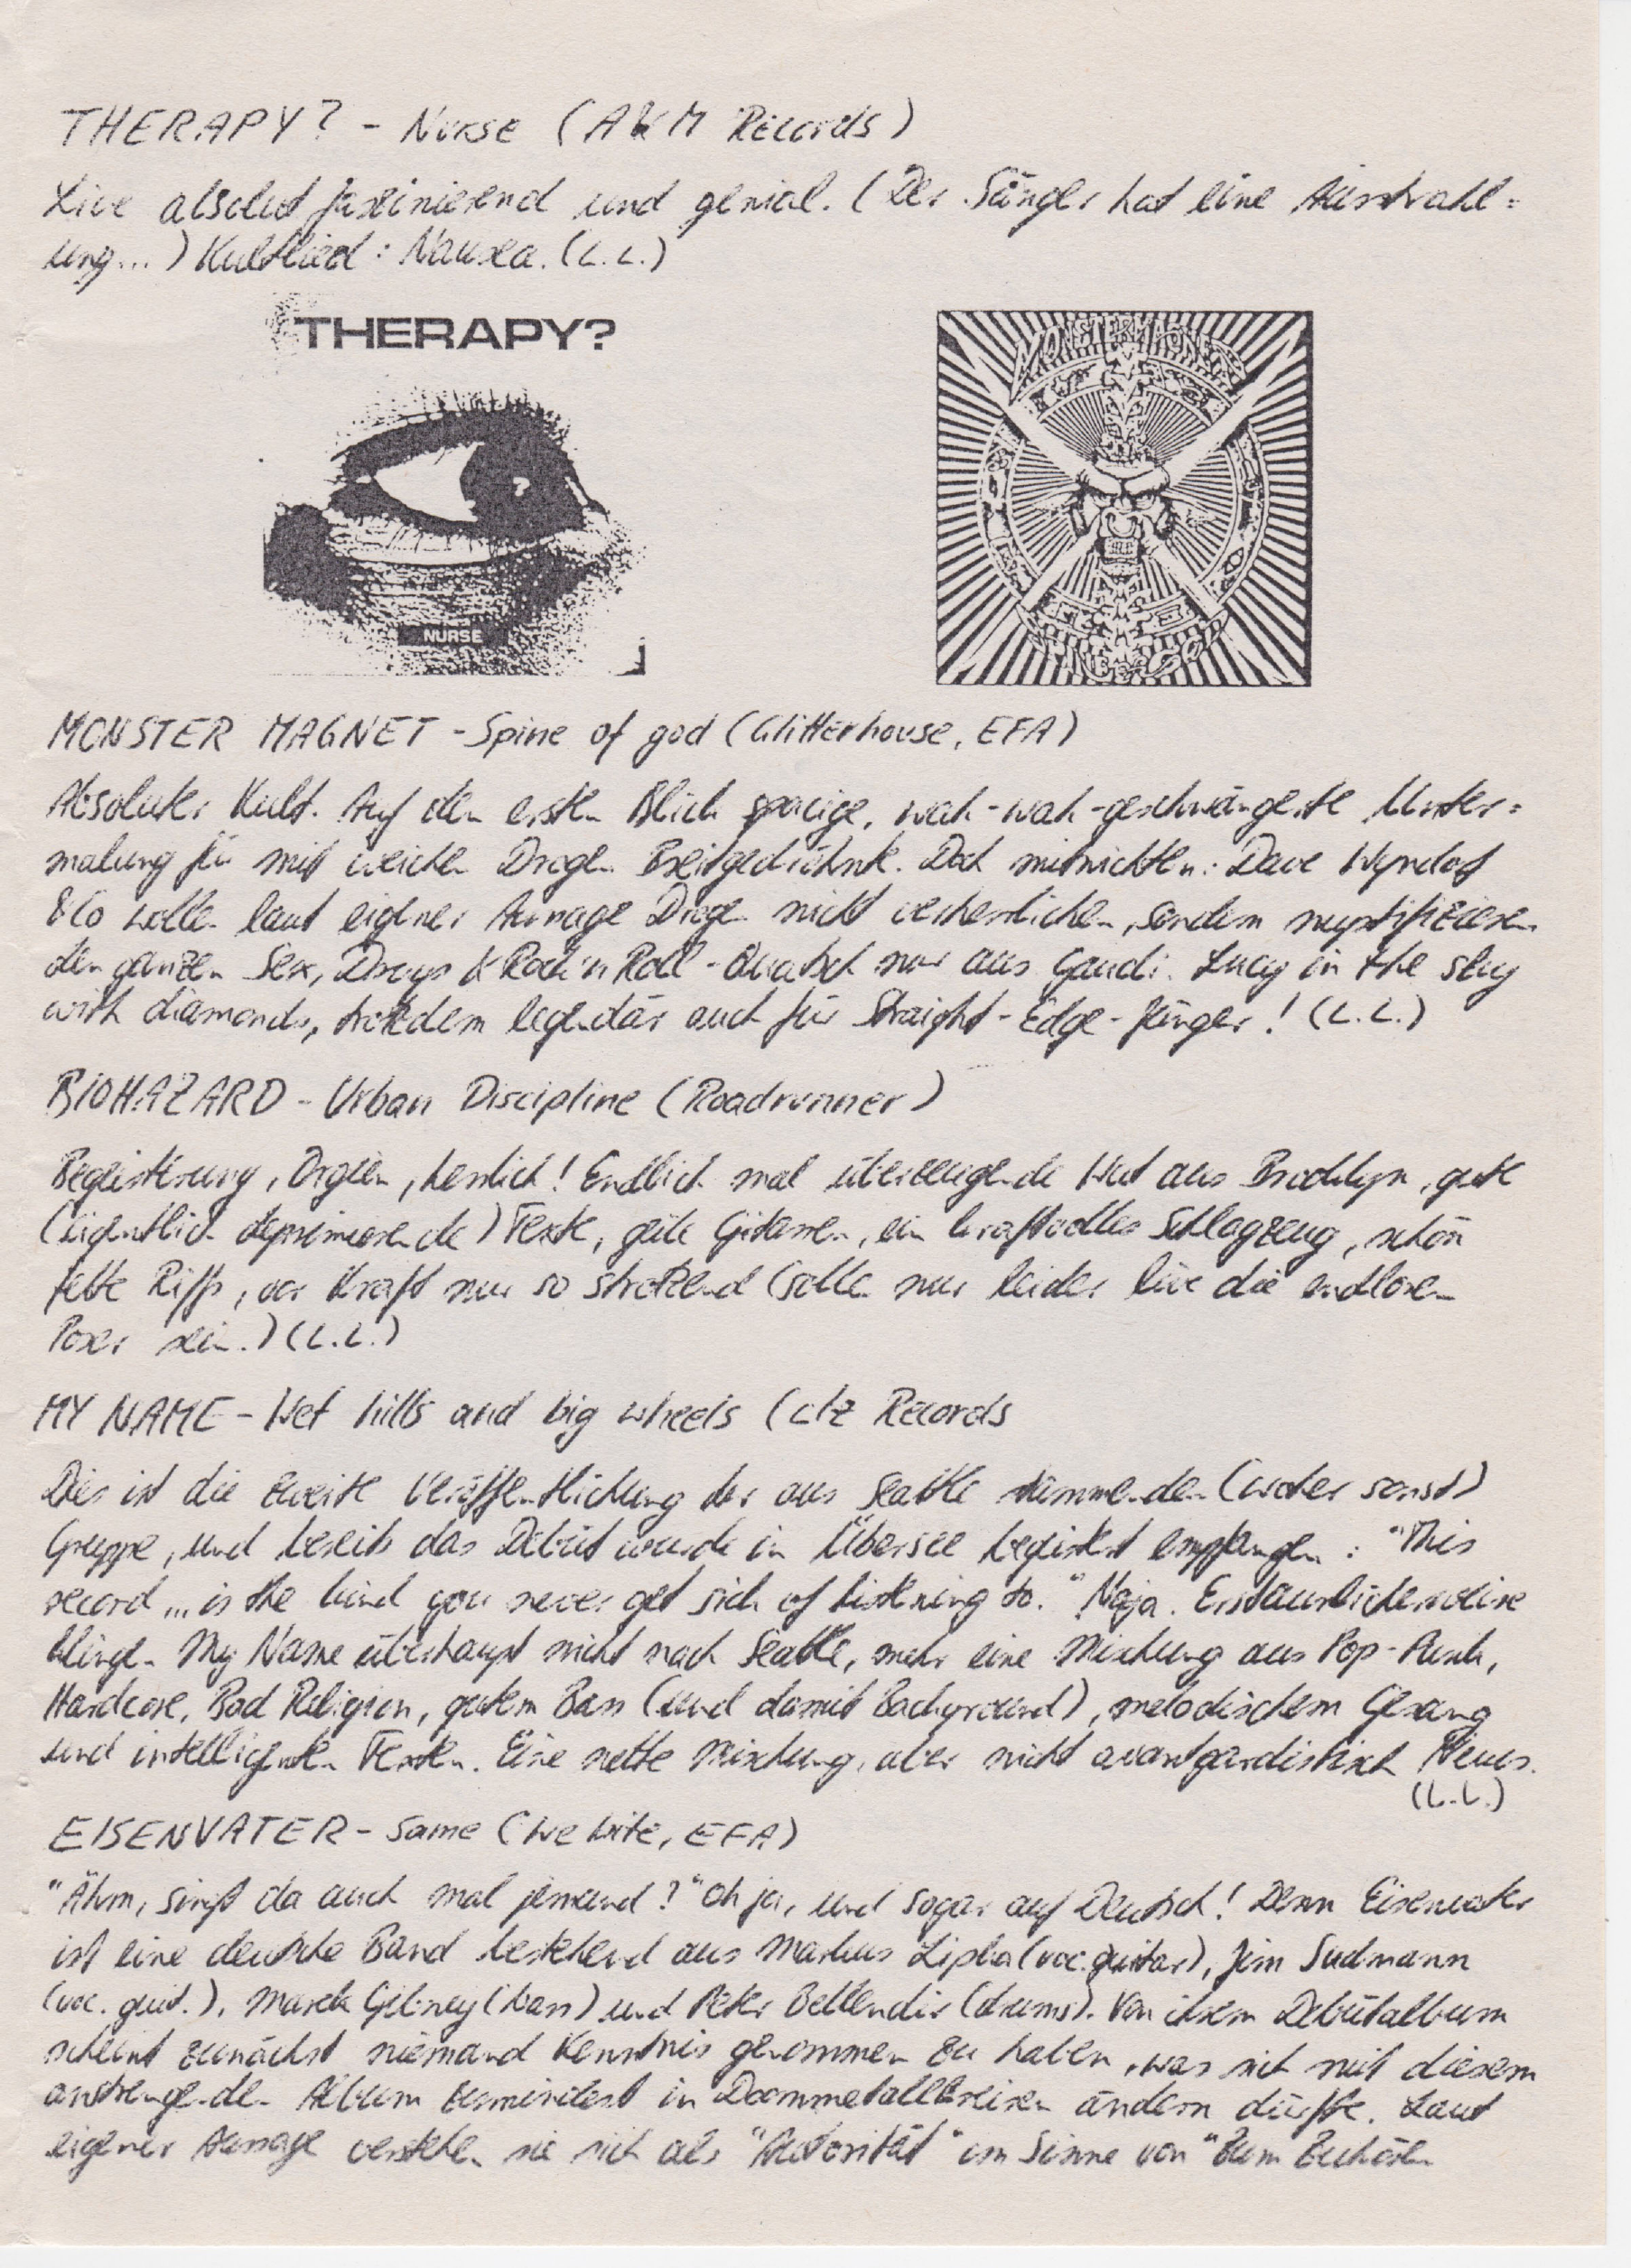 THERAPY? - Nurse (A&M Records)
Live absolut faszinierend und genial. (Der Sänger hat eine Ausstrahl=
ung...) Kultlied: Nausea. (L.L.)
THERAPY?
NURSE
MONSTER MAGNET
SPINE OF GOD
MONSTER MAGNET - Spine of god (Glitterhouse, EFA)
Absoluter Kult. Auf den ersten Blick spacige, wah-wah-geschwängerte Unter=
malung für mit weichen Drogen Breitgedröhnte. Doch mitnichten: Dave Wyndof
& Co wollen laut eigener Aussage Drogen nicht verherrlichen, sondern mystifizieren
den ganzen Sex, Drugs & Rock'n Roll-Quatsch nur aus Gaudi. Lucy in the sky
with diamonds, trotzdem legendär auch für Straight-Edge-Jünger! (L.L.)
BIOHAZARD - Urban Discipline (Roadrunner)
Begeisterung, Orgien, herrlich! Endlich mal überzeugende Wut aus Brooklyn, gute
(eigentlich deprimierende) Texte, geile Gitarren, ein kraftvolles Schlagzeug, schön
fette Riffs, vor Kraft nur so strotzend (sollen nur leider live die endlosen
Poser sein.) (L.L.)
MY NAME - Wet hills and big wheels (c/z Records
Dies ist die zweite Veröffentlichung der aus Seattle stammenden (woher sonst)
Gruppe, und bereits das Debüt wurde in Übersee begeistert empfangen: "This
record... is the kind you never get sick of listening to." Naja. Erstaunlicherweise
klingen My Name überhaupt nicht nach Seattle, mehr eine Mischung aus Pop-Punk,
Hardcore, Bad Religion, gutem Bass (und damit Background), melodischem Gesang
und intelligenten Texten. Eine nette Mischung, aber nicht avantgardistisch Neues.
(L.L.)
EISENVATER - Same (We bite, EFA)
"Ähm, singt da auch mal jemand?" Oh ja, und sogar auf Deutsch! Denn Eisenvater
ist eine deutsche Band bestehend aus Markus Lipka (voc. guitar), Jim Sudmann
(voc. guit.), Marek Gibney (bass) und Peter Bellendir (drums). Von ihrem Debütalbum
scheint zunächst niemand Kenntnis genommen zu haben, was sich mit diesem
anstrengenden Album zumindest in Doommetallkreisen ändern dürfte. Laut
eigener Aussage verstehen sie sich als "Autorität" im Sinne von "Zum Zuhören